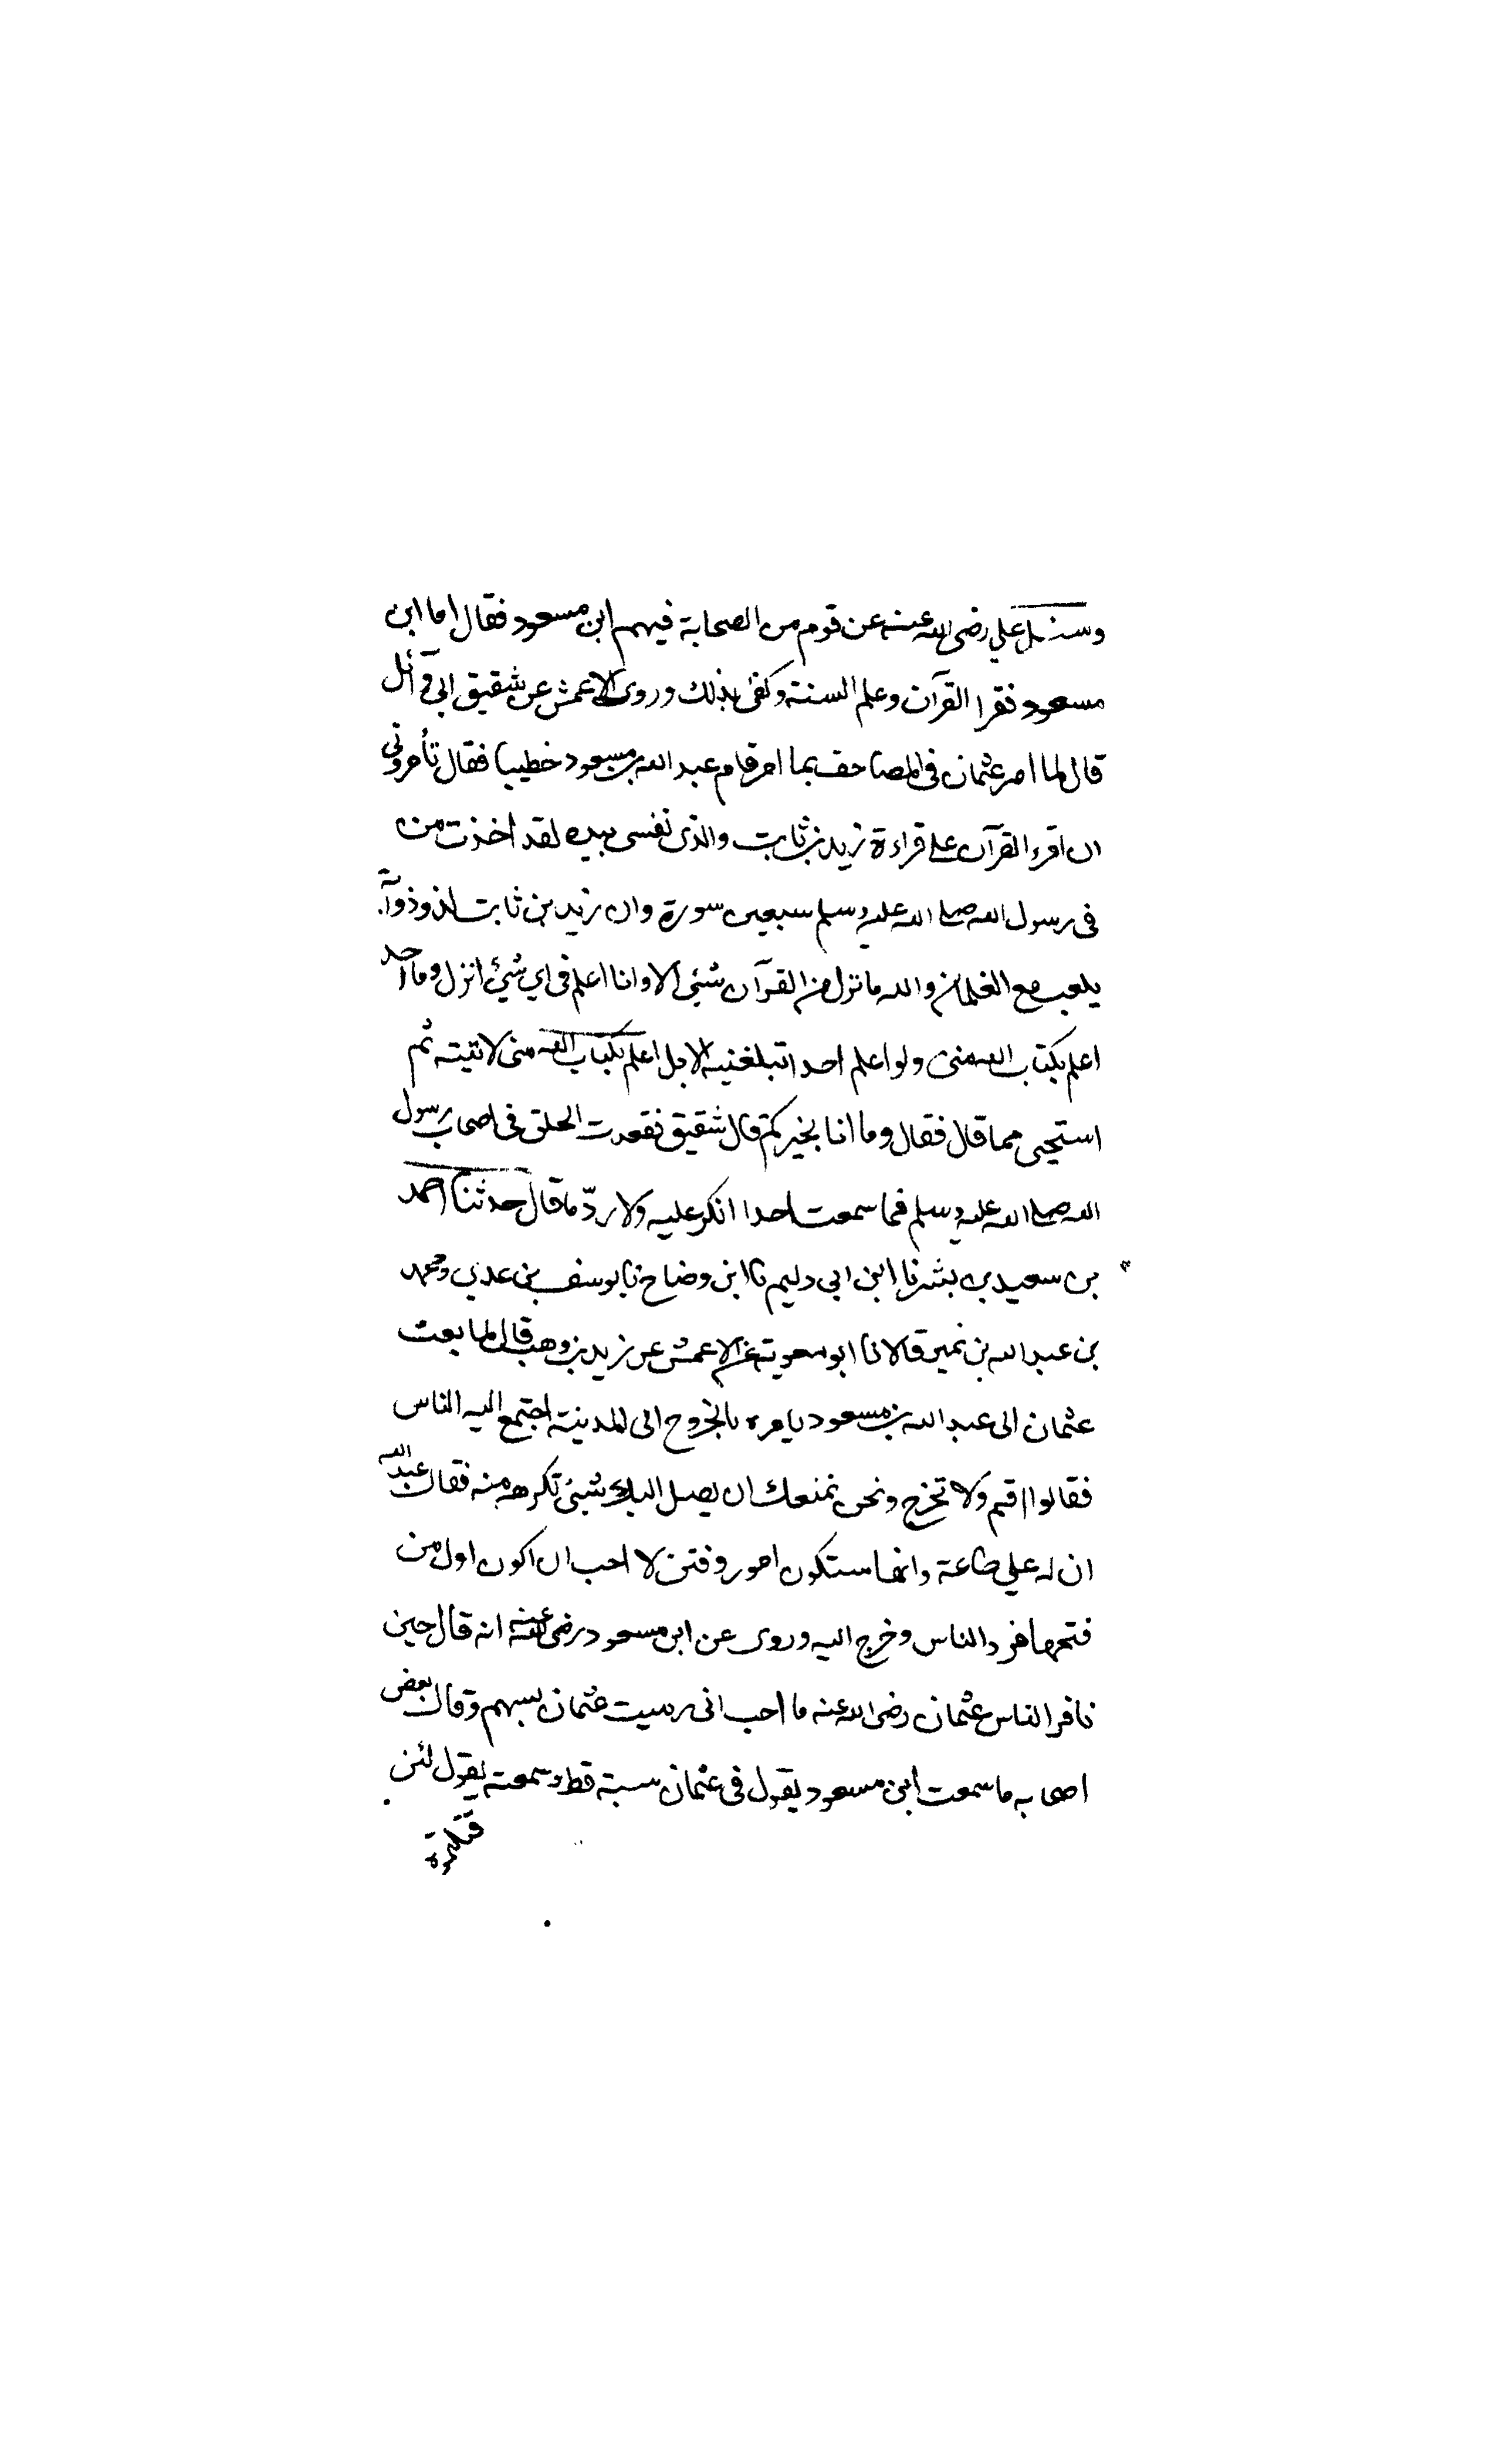 وسئل علي رضى الله عنه عن قوم من الصحابة فيهم ابن مسعود فقال اما ابن
مسعود فقرا القرآن وعلم السنة وكفى بذلك وروى الاعمش عن شقيق ابي وآئل
قال لما امر عثمان فى المصاحف بما امر قام عبد الله بن مسعود خطيبا فقال تأمرونى
ان اقرء القرآن على قراءة زيد بن ثابت والذى نفسى بيده لقد اخذت من
فى رسول الله صلى الله عليه وسلم سبعين سورة وان زيد بن ثابت لذو ذوآبة
يلعب مع الغلمان والله ما نزل من القرآن شئ الا وانا اعلم فى اي شئ انزل وما احد
اعلم بكتاب الله منى ولو اعلم احدا تبلغنيه الابل اعلم بكتاب الله منى لاتيته ثم
استحيى مما قال فقال وما انا بخيركم قال شقيق فقعدت الحلق فى اصحاب رسول
الله صلى الله عليه وسلم فما سمعت احدا انكر عليه ولا ردّ ما قال حدثنا احمد
بن سعيد بن بشر نا ابن ابى دليم نا ابن وضاح نا يوسف بن عدي ومحمد
بن عبد الله بن نمير قالا نا ابو معوية عن الاعمش عن زيد بن وهب قال لما بعث
عثمان الى عبد الله بن مسعود يامره بالخروج الى المدينة اجتمع اليه الناس
فقالوا اقم ولا تخرج ونحن نمنعك ان يصل اليك شئ تكرهه منه فقال عبد الله
ان له علي طاعة وانها ستكون امور وفتن لا احب ان اكون اول من
فتحها فرد الناس وخرج اليه وروى عن ابن مسعود رضى الله عنه انه قال حين
نافر الناس عثمان رضى الله عنه ما احب انى رميت عثمان بسهم وقال بعض
اصحابه ما سمعت ابن مسعود يقول فى عثمان سبة قط وسمعته يقول لئن
قتلوه